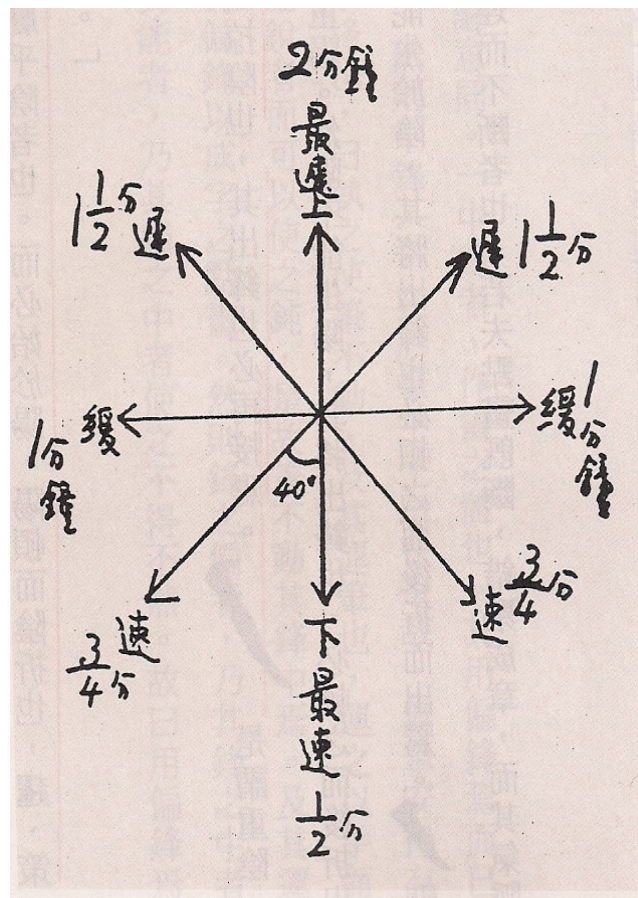 2分鐘
最遲上
1 1/2分遲
遲 1 1/2分
緩
1分鐘
緩
1分鐘
40°
速
3/4分
速 3/4分
下最速
1/2分